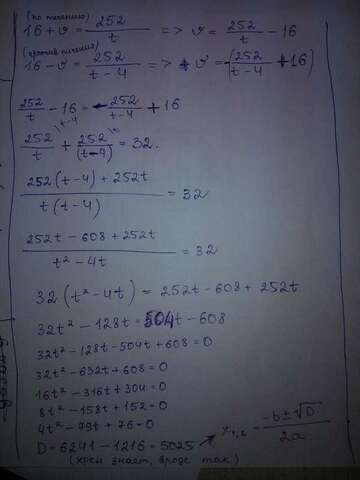 (по течению)
16 + v = 252/t => v = 252/t - 16
(против течения)
16 - v = 252/(t - 4) => v = -(252/(t-4) + 16)
252/t - 16 = -252/(t-4) + 16
252/t + 252/(t-4) = 32.
(252(t-4) + 252t)/(t(t-4)) = 32
(252t - 608 + 252t)/(t² - 4t) = 32
32(t² - 4t) = 252t - 608 + 252t
32t² - 128t = 504t - 608
32t² - 128t - 504t + 608 = 0
32t² - 632t + 608 = 0
16t² - 316t + 304 = 0
8t² - 158t + 152 = 0
4t² - 79t + 76 = 0
D = 6241 - 1216 = 5025 → x₁,₂ = (-b ± √D)/2a
(хрен знает, вроде так)